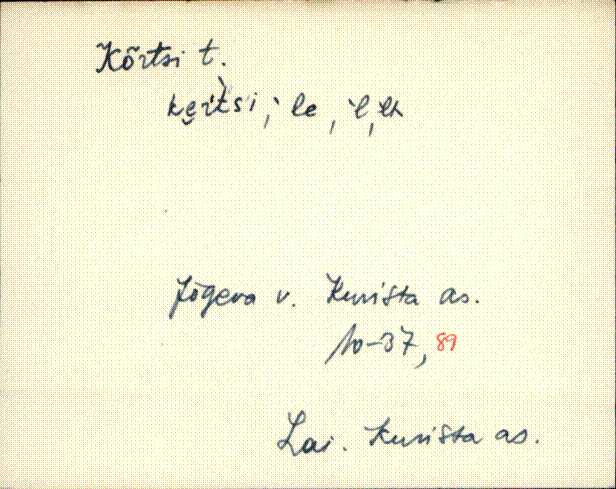 Kõrtsi t.
ke̮r̀tsi, `le, `l, lt
Jõgeva v. Kurista as.
10-37, 89
Lai. Kurista as.